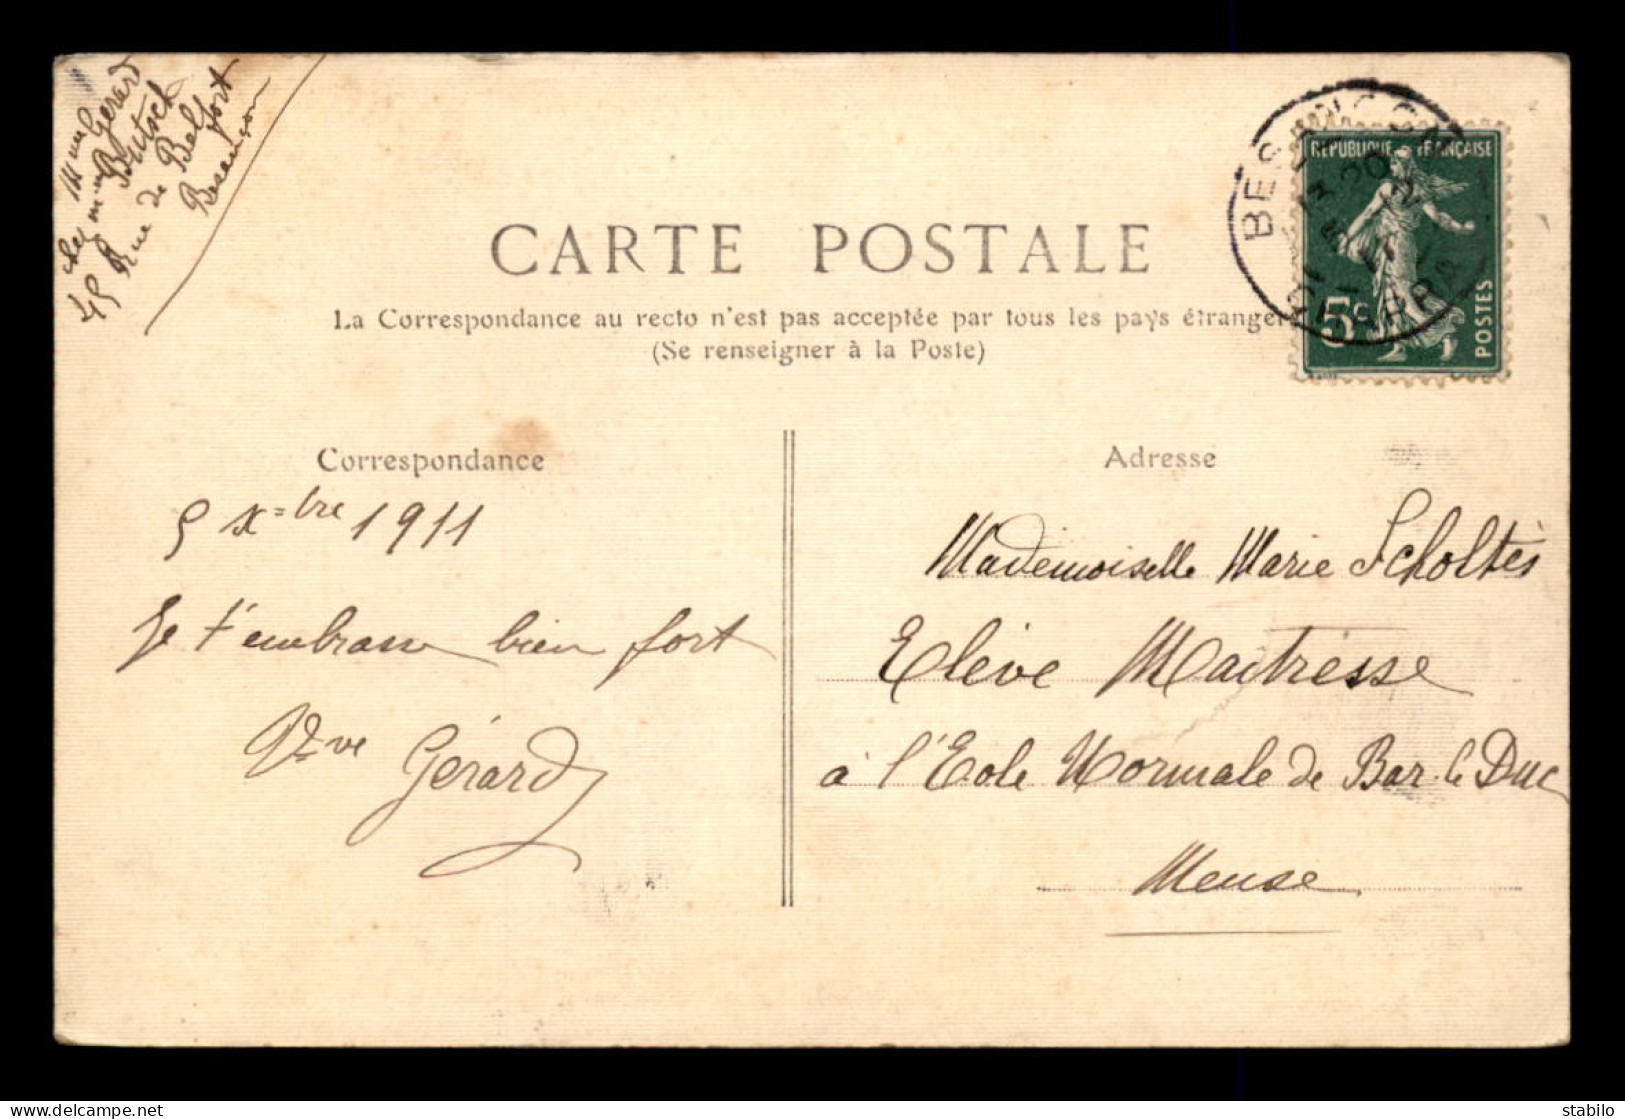 Mme Gérard
chez Mme Butsch
45 Rue de Belfort
Besançon
CARTE POSTALE
La Correspondance au recto n'est pas acceptée par tous les pays étranger
(Se renseigner à la Poste)
BESANCON
RÉPUBLIQUE FRANÇAISE
5c
POSTES
Correspondance
5 xbre 1911
Je t'embrasse bien fort
Vve Gérard
Adresse
Mademoiselle Marie Scholtès
Elève Maitresse
à l'Ecole Normale de Bar-le Duc
Meuse
stabilo